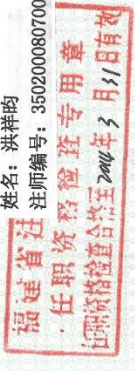 姓名：洪祥昀
注师编号：350200080700
福建省注
任职资格检查专用章
任职资格检查合格至
年3月31日有效